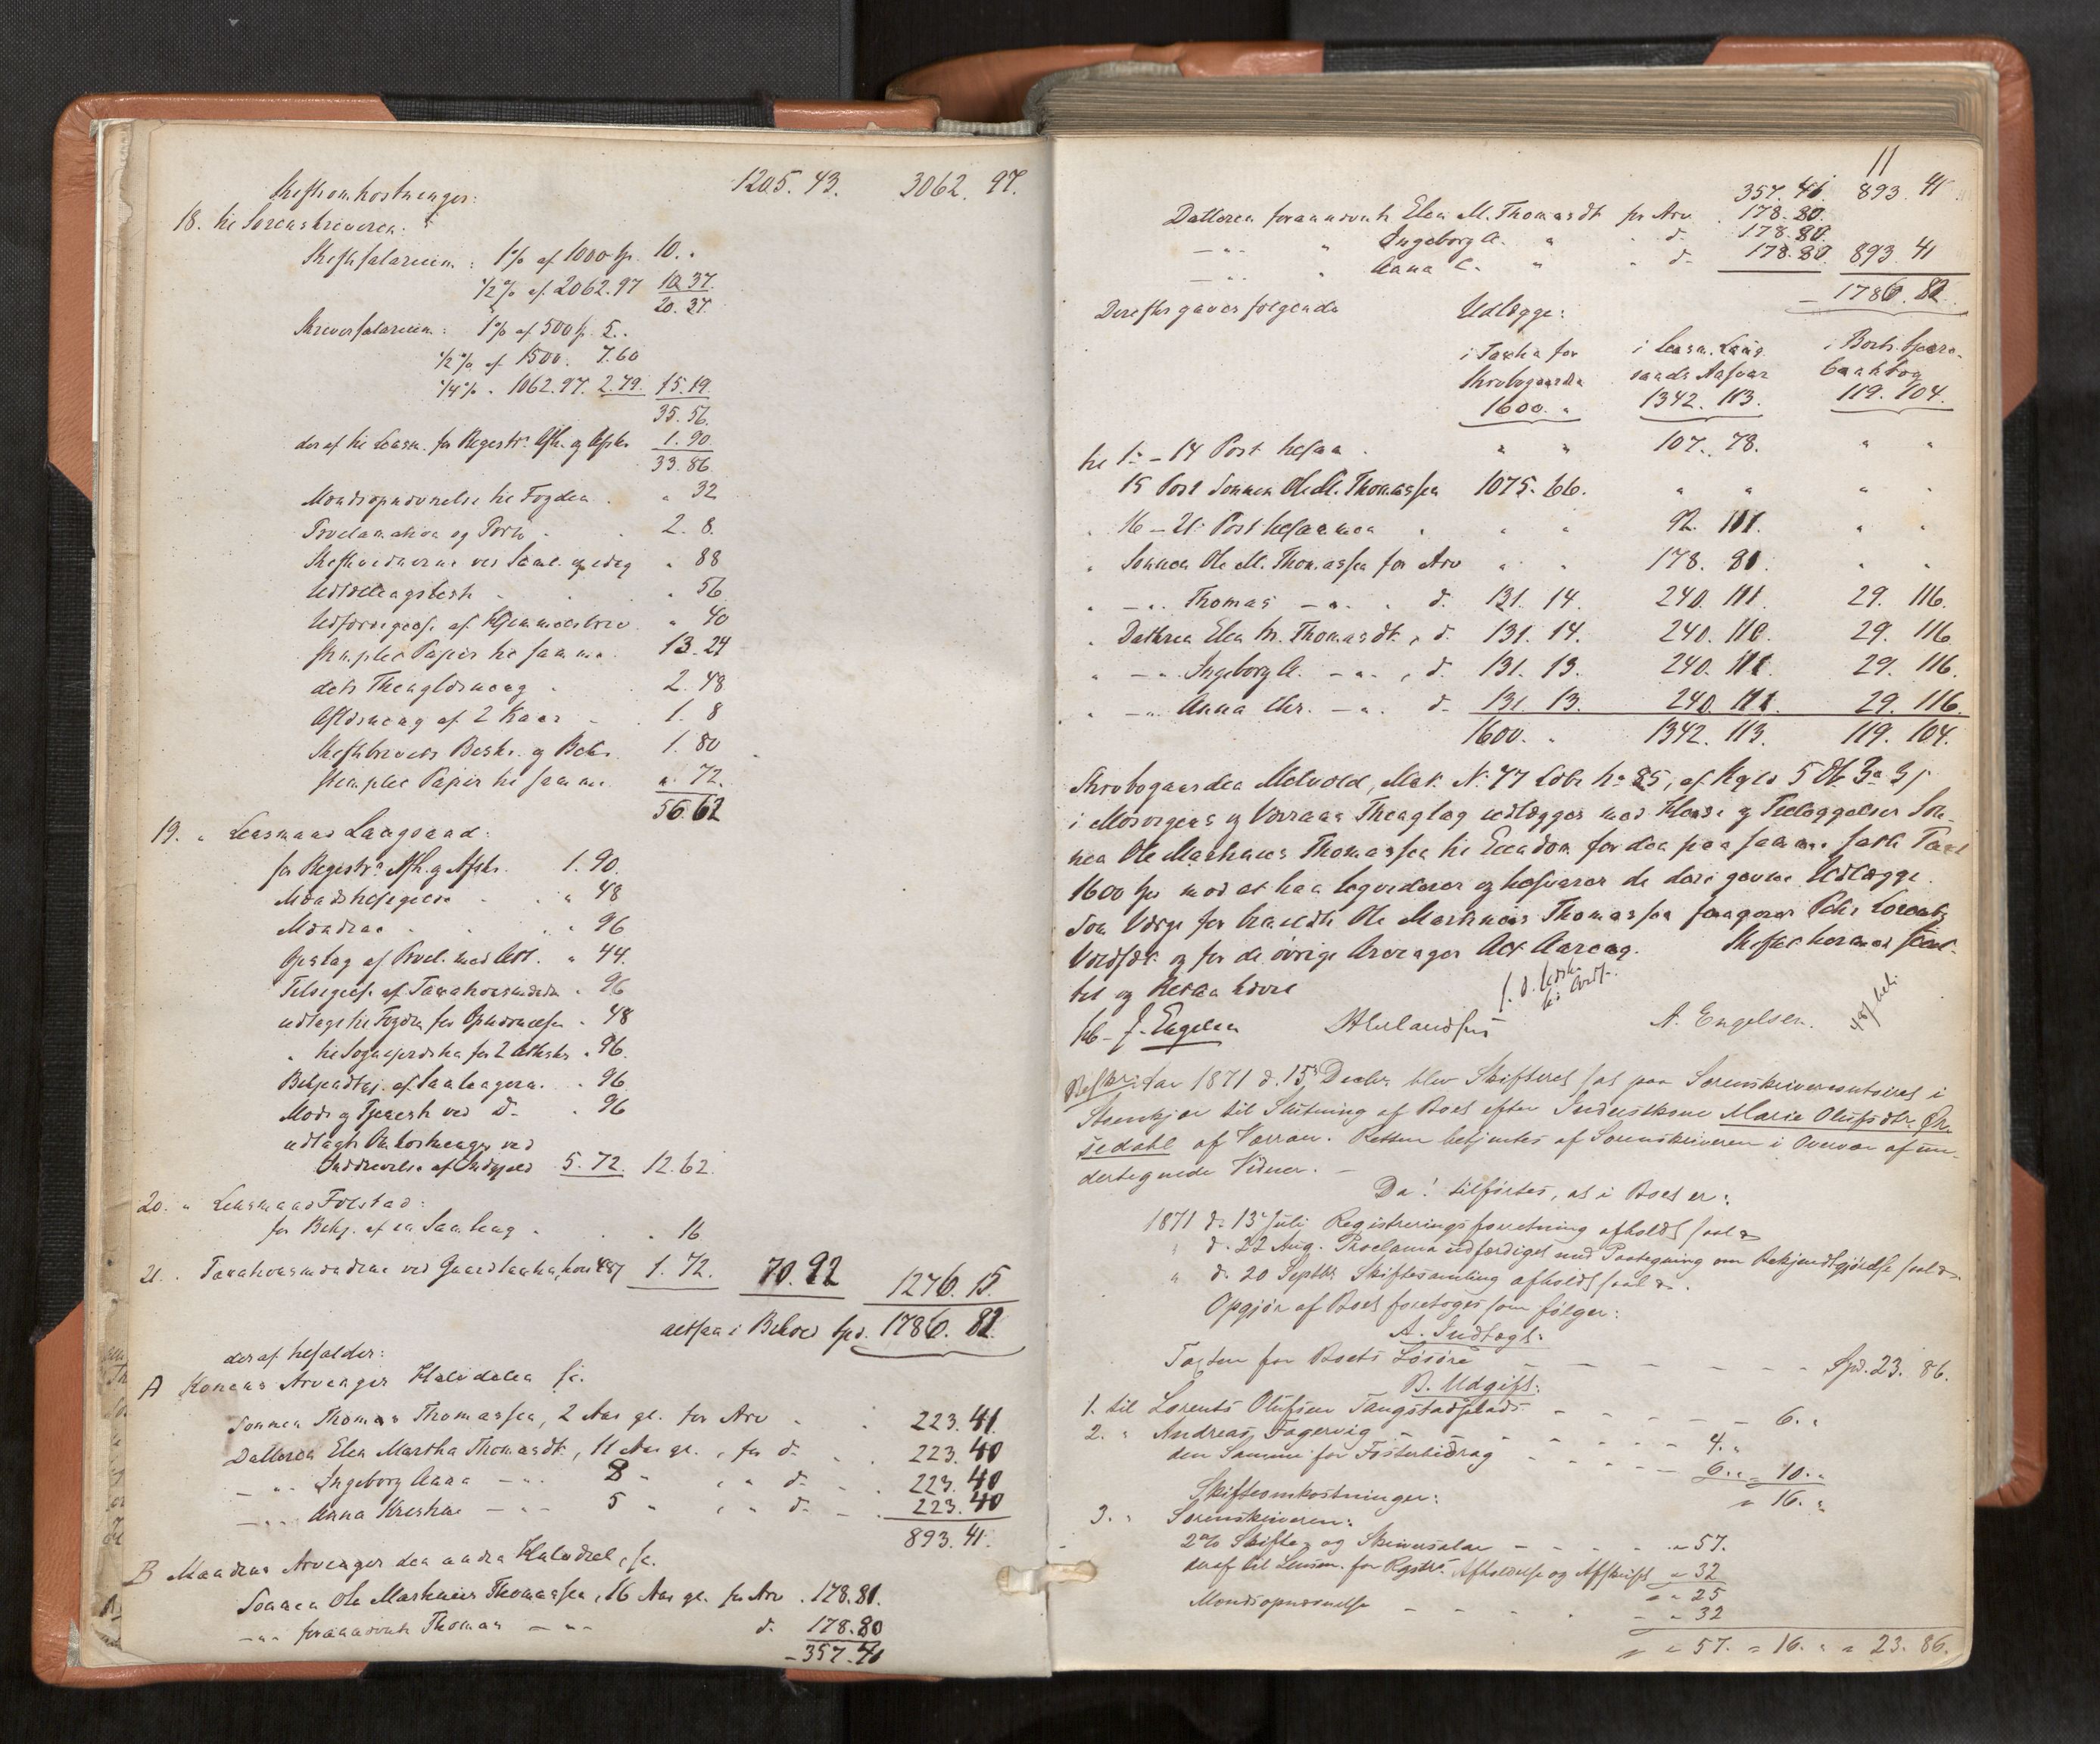 Skifteomkostninger: 1205. 43. 3062. 97.
18. til Sorenskriveren:
Skiftesalarium: 1% af 1000 Sp. 10. "
1/2% af 2062. 97 10. 37.
20. 37.
Skriversalarium: 1% af 500 Sp. 5. "
1/2% af 1500. 7. 60
1/4% " 1062. 97. 2. 79. 15. 19.
35. 56.
deraf til Lensm. for Registr. Afh. og Afskr. 1. 90.
33. 86.
Mændsopnævnelse til Fogden " 32
Proclamation og Porto 2. 8.
Skiftevidnerne ved Saml. og idag " 88
" 56
" 40
stemplet Papir til samme 13. 24
dets Thinglæsning 2. 48
Aflæsning af 2 1. 8
Skiftebrevets Beskr. og 1. 80
stemplet Papir til samme " 72.
56. 62
19. " Lensmand Langsaad:
for Registr. Afh. og Afskr. 1. 90.
Mændstilsigelse " 48
Mændene " 96
Opslag af Procl. med Att. " 44.
Tilsigelse af Taxationsmænd " 96
udlagt til Fogden for Opnævnelsen " 48
" til Sognepræsten for 2 Attester " 96.
Bekjendtgj. af Samlingerne " 96
Møde og ved D. " 96
udlagte Omkostninger ved
Inddrivelse af 5. 72. 12. 62.
20. " Lensmand Folstad:
for Bekj. af en Samling " 16
21. " Taxationsmændene ved 1. 72. 70. 92 1276. 15.
altsaa i Behold Spd. 1786. 82.
deraf tilfalder:
A Konens Arvinger Halvdelen s.:
Sønnen Thomas Thomassen, 2 Aar gl. for Arv 223. 41.
Datteren Elen Martha Thomasdt., 11 Aar gl., for d. 223. 40
— " — Ingeborg Anna — " — 8 " " d. 223. 40
— " — Anna Kirstine — " — 5 " " d. 223. 40
893. 41.
B Mandens Arvinger den andre Halvdeel, s.:
Sønnen Ole Martinus Thomassen, 16 Aar gl. for Arv 178. 81.
— " — forannævnte Thomas — " — d. 178. 80
357. 41
11
357. 41 893. 41
Datteren forannævnte Elen M. Thomasdt for Arv 178. 80.
— " — " Ingeborg A. " " d. 178. 80.
— " — " Anna C. " " d. 178. 80. 893. 41
1786. 82.
Derefter gaves følgende Udlægge:
i Taxten for i Lensm. Lang- i Boets Spare-
Skovbogaarden saads Ansvar bankbog
1600. " 1342. 113. 119. 104.
til 1ste – 14 Post tilsam. " " 107. 78. " "
15 Post Sønnen Ole M. Thomassen 1075. 66. " " " "
" 16 – 21 Post tilsammen " " 92. 111. " "
" Sønnen Ole M. Thomassen for Arv " " 178. 81. " "
" — " — Thomas — " — d. 131. 14. 240. 111. 29. 116.
" Datteren Elen M. Thomasdt., d. 131. 14. 240. 110. 29. 116
" — " — Ingeborg A. — " —, d. 131. 13. 240. 111. 29. 116.
" — " — Anna Chr. — " — d. 131. 13. 240. 111. 29. 116.
1600. " 1342. 113. 119. 104.
Skovbogaarden Melvold, Mat. No. 77 Løbe No. 85, af Skyld 5 3 3
i Mosvigens og Værrans Thinglag udlægges med Huse og Tillæggelser Søn-
nen Ole Martinus Thomassen til Eiendom for den paa samme satte Taxt
1600 Sp. mod at han og tilsvarer de deri gjorte Udlægge.
Som Værge for Ole Martinus Thomassen fungerer Peter Lorents
og for de øvrige Arvinger Alx Aarning. Skiftet hermed slut-
tet og hævet
Kb– J. Engelsen A. Engelsen.
Beskr. Aar 1871 d. 15de Decbr. blev Skifteret sat paa Sorenskrivercontoiret i
Stenkjær til Slutning af Boet efter Inderstkone Maria Olufsdtr. Øk-
sedahl af Værran. Retten betjentes af Sorenskriveren i Overvær af un-
dertegnede Vidner. –
Da! tilførtes, at i Boet er:
1871 d. 13 Juli Registreringsforretning afholdt saal.
" d. 22 Aug. Proclama udfærdiget med Paategning om Bekjendtgjørelse saal.
" d. 20 Septbr. Skiftesamling afholdt saal.
Opgjør af Boet foretoges som følger:
A. Indtægt:
Taxten for Boets Løsøre – – – – Spd. 23. 86.
B. Udgift:
1. til Lorents Olufsen Tangstadplads – – – – 6. "
2. " Andreas Fagervig – – – – 4. "
den Samme for Fosterbidrag – – – 6. " 10. "
" 16. "
Skifteomkostninger:
3. " Sorenskriveren:
2% Skifte- og Skriversalar – – – " 57.
deraf til Lensm. for Regstr. Afholdelse og Afskrift " 32
" " 25
Mændsopnævnelse – – – " 32
" " 57. " 16. " " 23. 86.